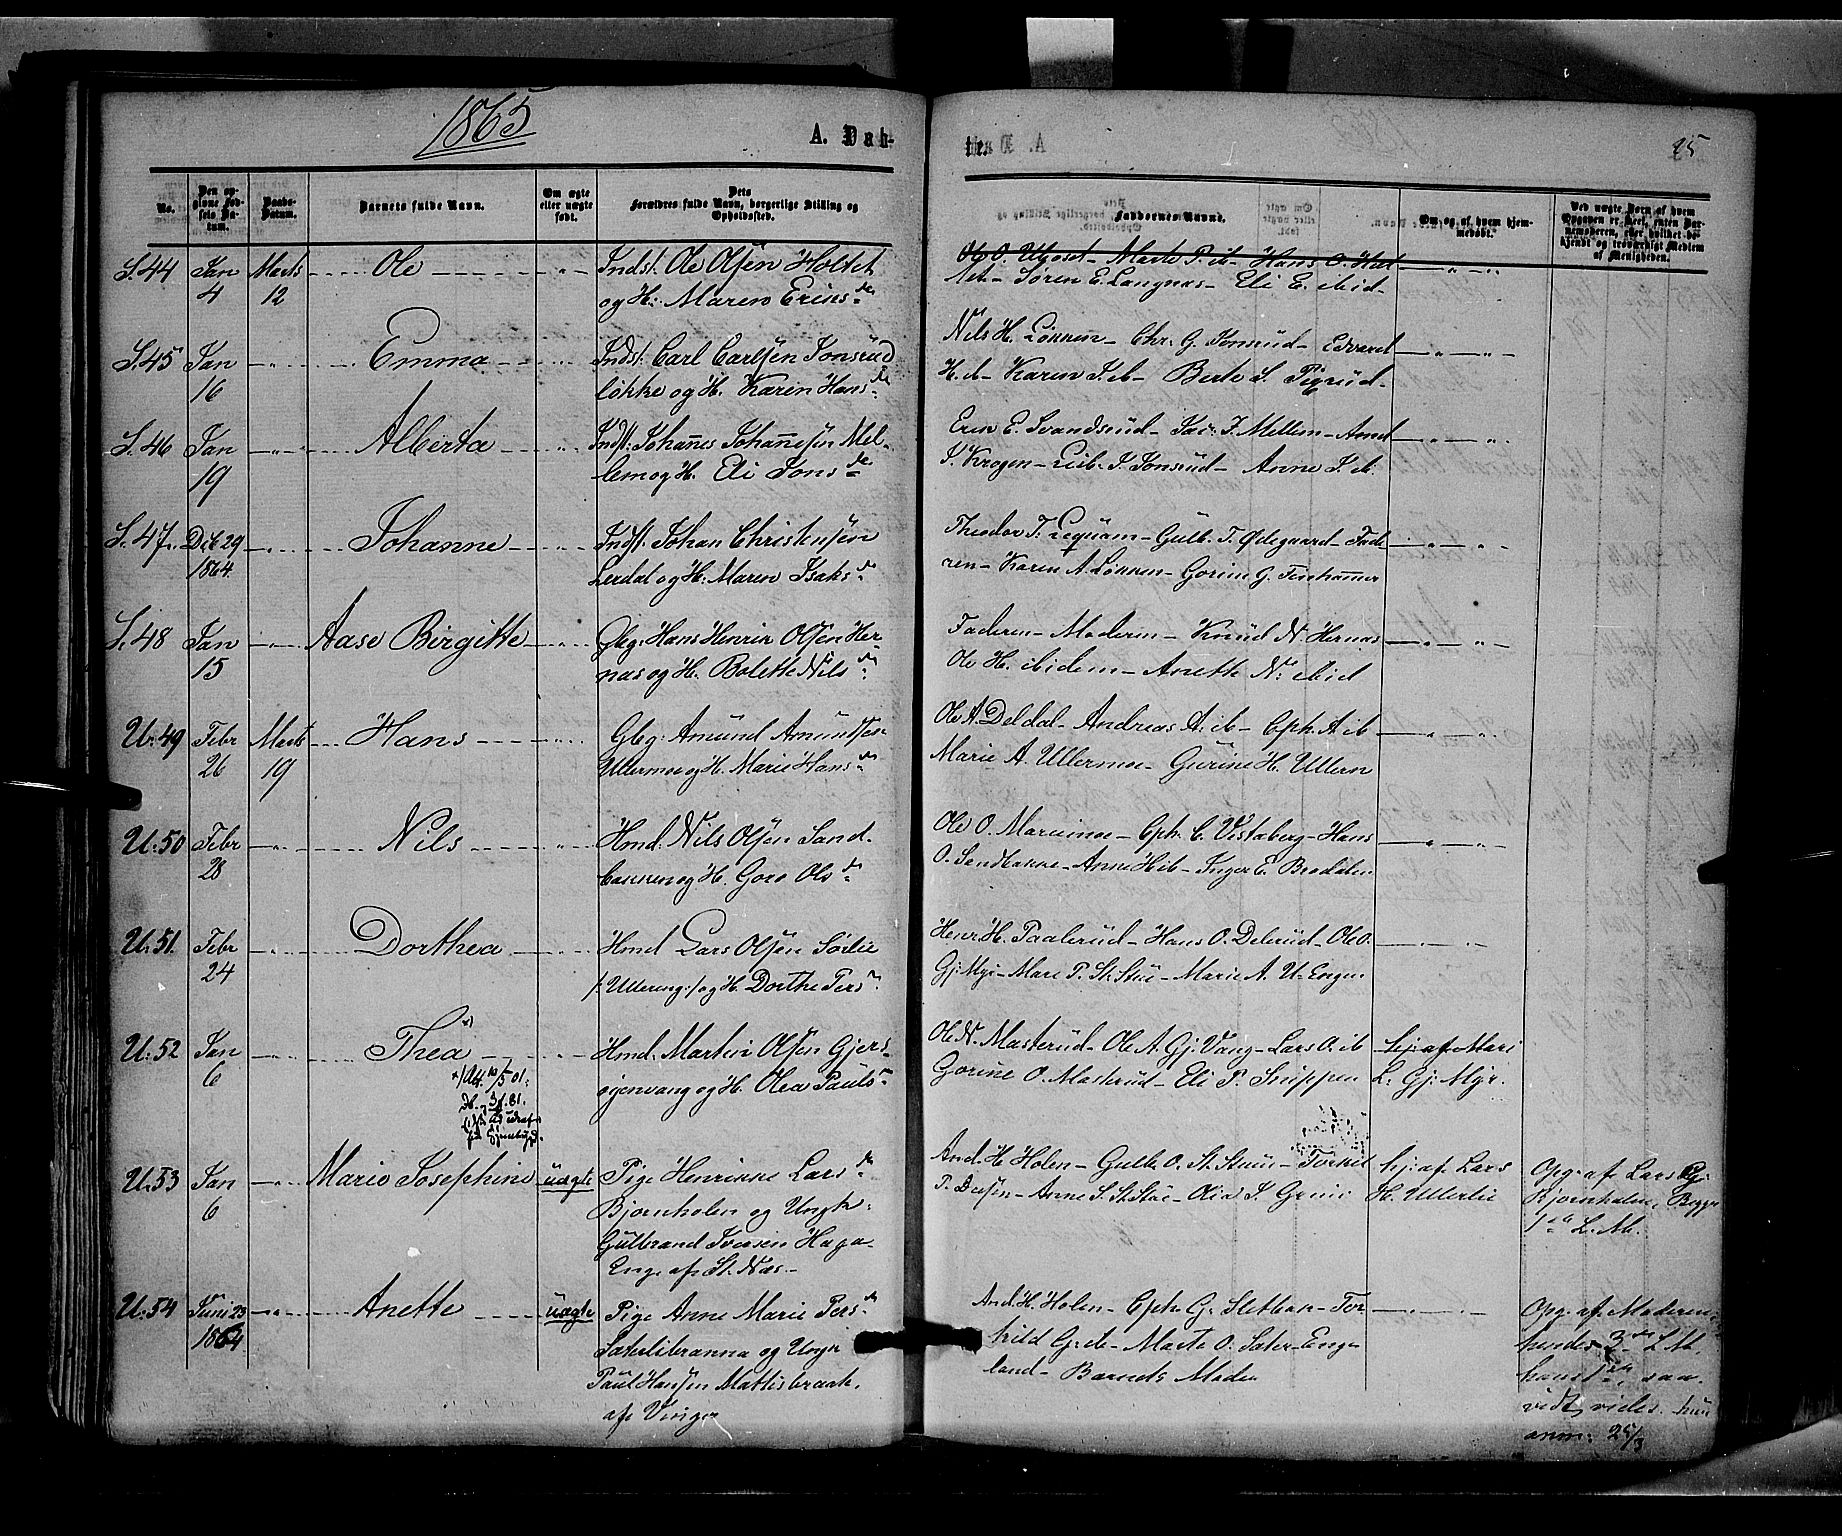 1865
A. Dåb-
te.
25
No.
Den opgivne Fødsels Datum.
Daabs-Datum.
Barnets fulde Navn.
Om ægte eller uægte født.
Dets Forældres fulde Navn, borgerlige Stilling og Opholdssted.
Faddernes Navne.
Om, og af hvem hjemmedøbt.
Ved uægte Børn af hvem Opgaven er skeet, enten Barnemoderen, eller hvilket bekjendt og troværdigt Medlem af Menigheden.
S. 44 Jan 4 Marts 12 Ole Indst: Ole Olsen Holtet
og H: Maren Erics d.
Ole O. Ulset - Marte P. ib - Hans O. Hol-
tet - Søren E. Langnæs - Eli E. ibid -
S. 45 Jan 16 Emma Indst. Carl Carlsen Jonsrud
løkke og H. Karen Hans d.
Nils H. Løkken - Chr. G. Jonsrud - Edvard
H. ib - Karen J. ib - Berte S. Pigrud -
S. 46 Jan 19 Alberta Indst: Johannes Johannesen Mel-
lem og H. Eli Jons d.
Eric E. Svandsrud - Jac: J. Mellem - Arnt
S. Krogen - Lib. J. Jonsrud - Anne J. ib.
S. 47. Dcb 29 1864. Johanne Indst. Johan Christensen
Lerdal og H. Maren Isaks d.
Theodor T. Lequam - Gulb. T. Ødegaard - Fade
ren - Karen A. Løkken - Gorine G. Finhammer
S. 48 Jan 15 Aase Birgitte Gbg: Hans Henric Olsen Her-
næs og H. Bolette Nils d.
Faderen - Moderen - Knud N. Hernæs
Ole H. ibidem - Anette N. ibid
U. 49 Febr 26 Marts 19 Hans Gbg. Amund Amundsen
Ullermoe og H. Marie Hans d.
Ole A. Deldal - Andreas A. ib - Eph. A ib
Marie A. Ullermoe - Gurine H. Ullern
U. 50 Febr 28 Nils Hmd. Nils Olsen Sand-
bakken og H. Goro Ols d.
Ole O. Marumoe - Eph. C. Vestaberg - Hans
O. Sandbakke - Anne H ib - Inger E. Brodalen
U. 51. Febr 24 Dorthea Hmd Lars Olsen Sørlie
/: Ullereng :/ og H. Dorthe Pers d.
Henr H. Paalerud - Hans O. Delerud - Ole O.
Gj: Myr - Mari P. St. Stue - Marie A. U. Engen
U. 52 Jan 6 Thea x)
x) Att. 10/5 01:
Hmd. Martin Olsen Gjers-
øjenvang og H. Olea Pauls d.
Ole N. Masterud - Ole A. Gj. Vang - Lars O. ib
Gorine O. Masterud - Eli P. Snippen
hj: af Mari
L. Gj: Myr.
U. 53 Jan 6 Marie Josephine uægte Pige Henrikke Lars d.
Bjørnholen og Ungk:
Gulbrand Iversen Haga-
Enge af St. Næs -
And. H. Holen - Gulb. O. St. Stue - Torkil
P. Diesen - Anne S. St. Stue - Olia S. Grini
hj: af Lars
H. Ullerlie
Opg. af Lars Gj:
Bjørnholen, Begges
1ste L. M.
U. 54 Juni 23 1864 Anette uægte Pige Anne Marie Pers d.
Sæterlibranna og Ungk
Paul Hansen Mattisbraate
af Vinger
And. H. Holen - Eph. G. Sletbak - Tor-
kild G. ib - Marte O. Sæter-Enge-
land - Barnets Moder
Opg. af Moderen,
hendes 3die L. M.
hans 1ste, saa-
vidt vides. hun
anm: 25/3